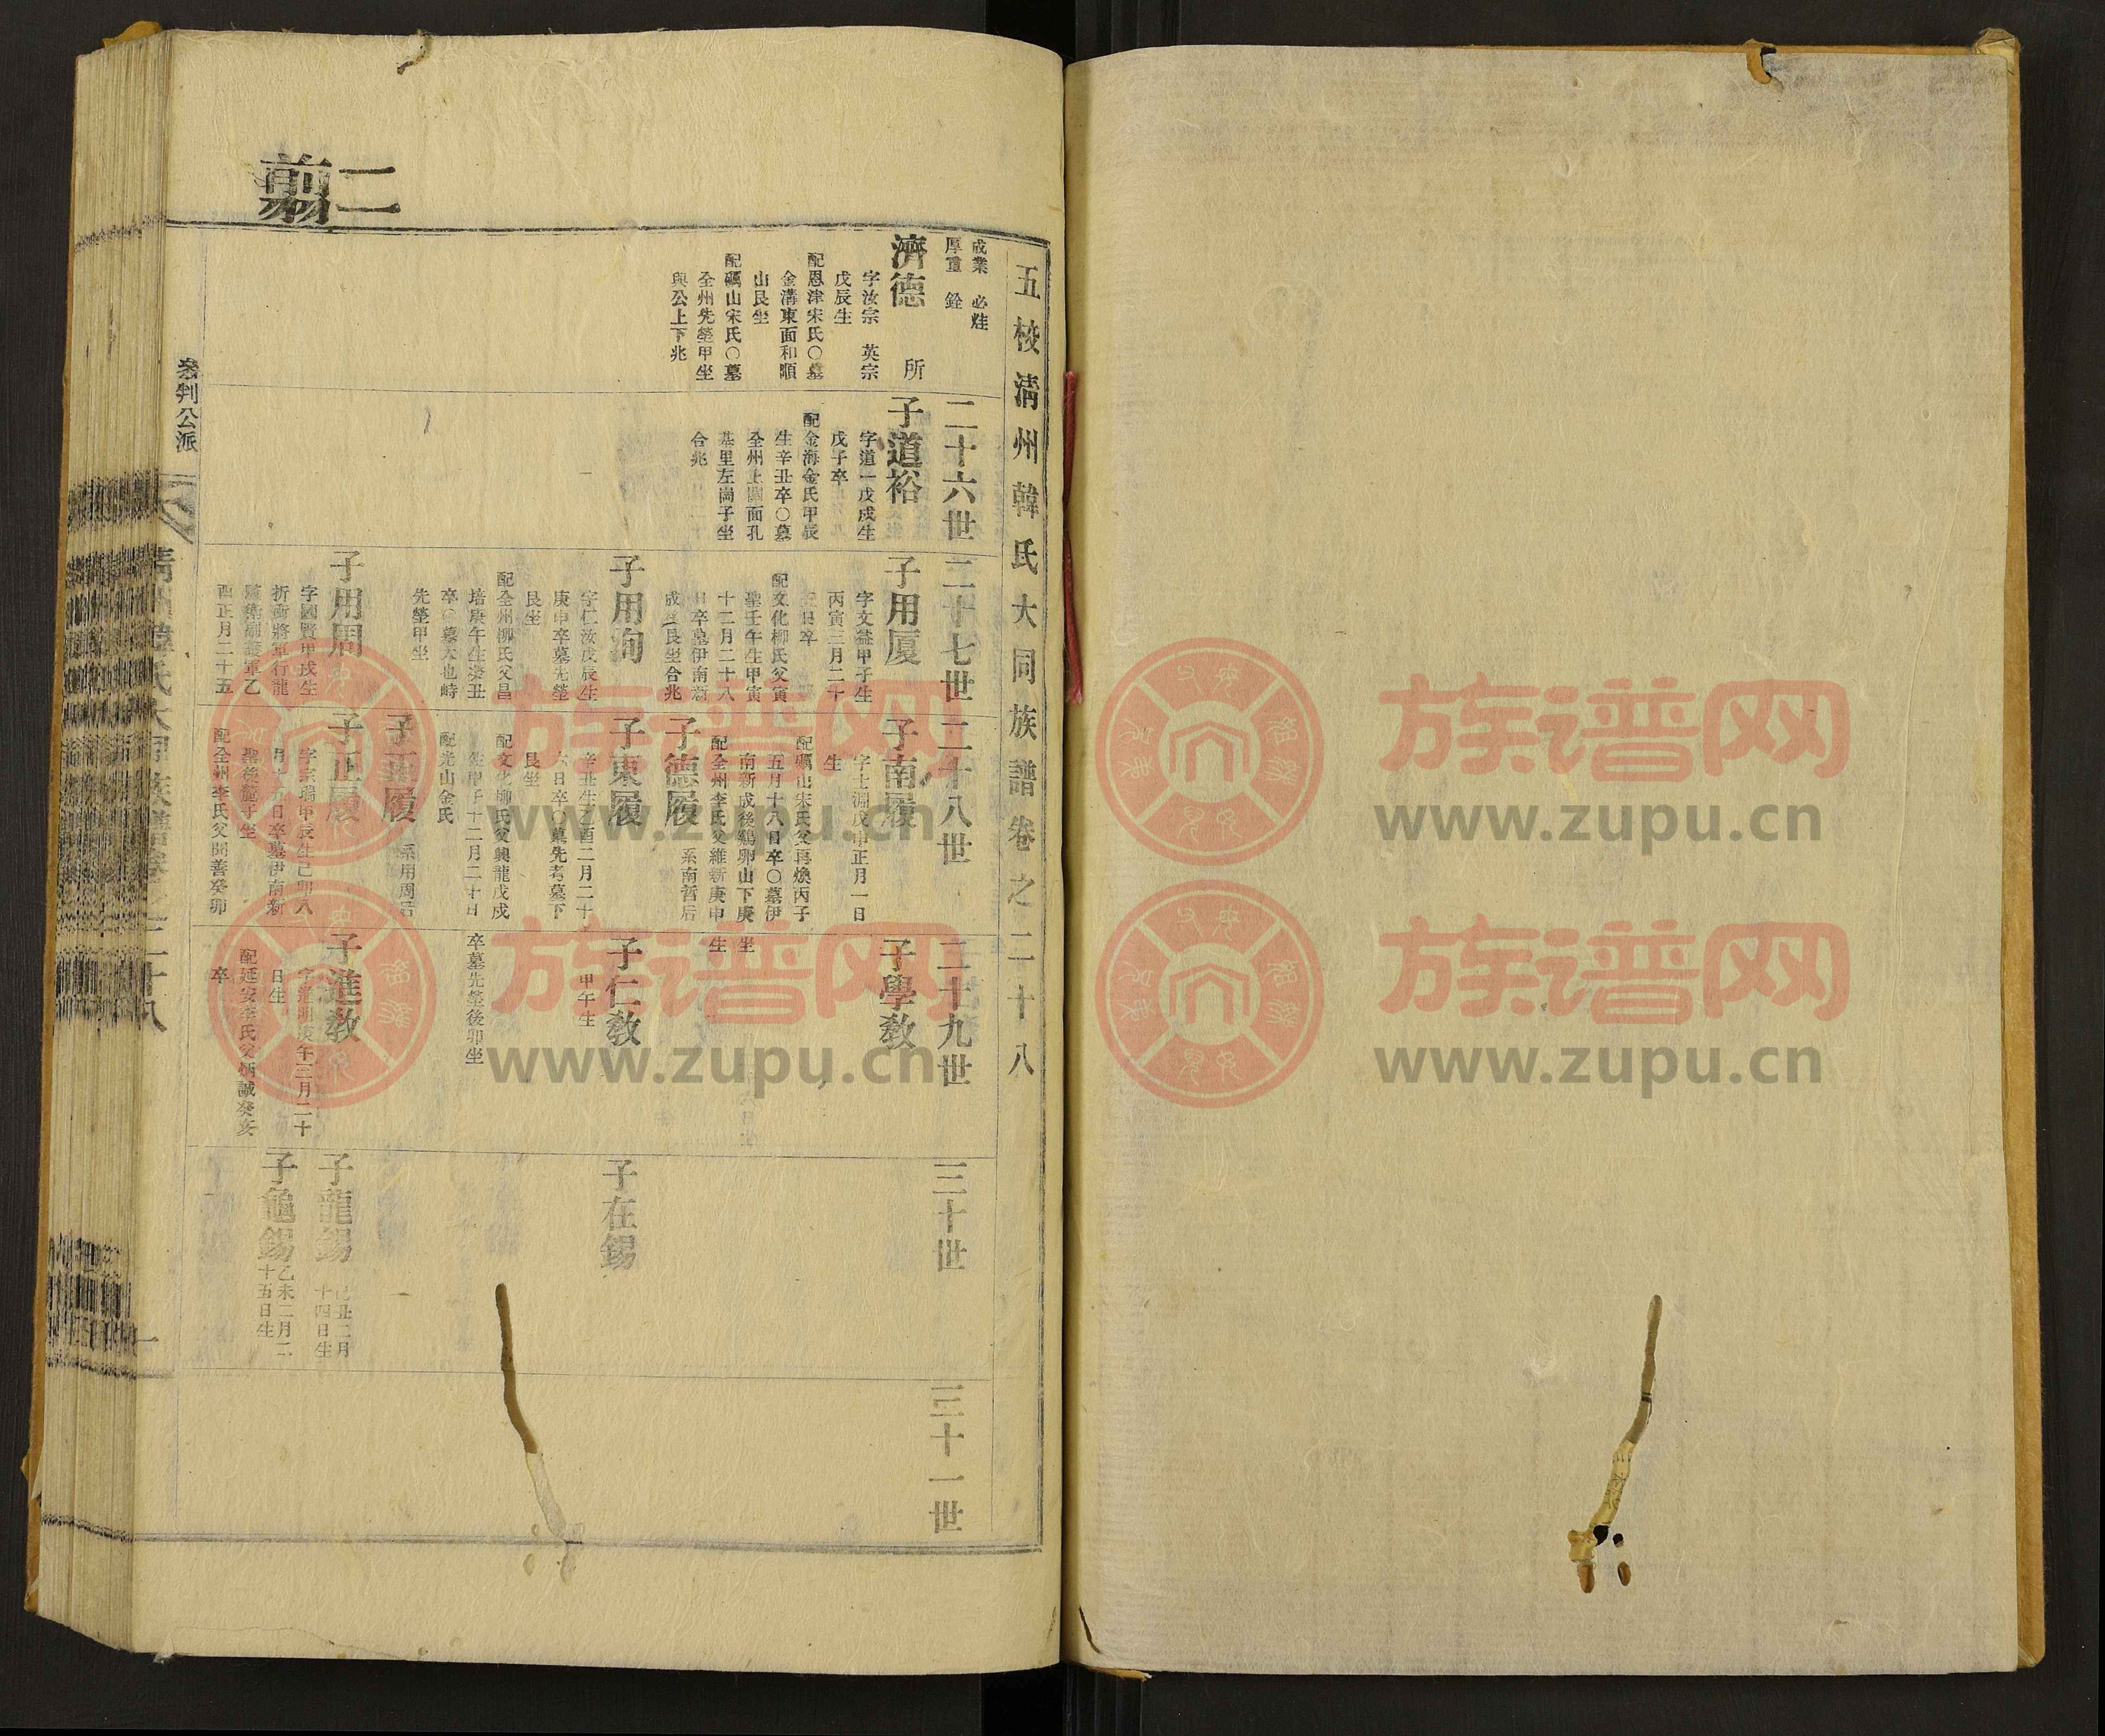 二
翦
五校淸州韓氏大同族譜卷之二十八
成業　必烓
厚重　銓
濟德　所
字汝宗　英宗
戊辰生
配恩津宋氏○墓
金溝東面和順
山艮坐
配礪山宋氏○墓
全州先塋甲坐
與公上下兆
二十六世
子道裕
字道一戊戌生
戊子卒
配金海金氏甲辰
生辛丑卒○墓
全州上關面孔
基里左崗子坐
合兆
二十七世
子用厦
字文益甲子生
丙寅三月二十
日卒
配文化柳氏父寅
聖壬午生甲寅
十二月二十八
日卒墓伊南新
成後艮坐合兆
子用洵
字仁汝戊辰生
庚申卒墓先塋
艮坐
配全州柳氏父昌
培庚午生癸丑
卒○墓大也峙
先塋甲坐
子用周
字國賢甲戌生
折衝將軍行龍
驤衛副護軍乙
酉正月二十五
二十八世
子南履
字士淵戊申正月一日
生
配礪山宋氏父再煥丙子
五月十八日卒○墓伊
南新成後鷄卵山下庚
坐
配全州李氏父維新庚申
生
子德履
系南哲后
子東履
字辛丑生乙酉二月二十
六日卒○墓先考墓下
艮坐
配文化柳氏父興龍戊戌
生甲子十二月二十日
卒墓先塋後卯坐
配光山金氏
子正履
系用周后
子正履
字宗瑞甲辰生己卯八
月十六日卒墓伊南新
聖後龍子坐
配全州李氏父問善癸卯
卒
二十九世
子學敎
子仁敎
甲午生
子進敎
字進明庚午三月二十
日生
配延安李氏父炳誠癸亥
三十世
子在錫
子龍錫
己丑二月
十四日生
子龜錫
乙未二月二
十五日生
三十一世
參判公派
淸州韓氏大同族譜卷之二十八
一
族谱网
www.zupu.cn
族谱网
www.zupu.cn
族谱网
www.zupu.cn
族谱网
www.zupu.cn